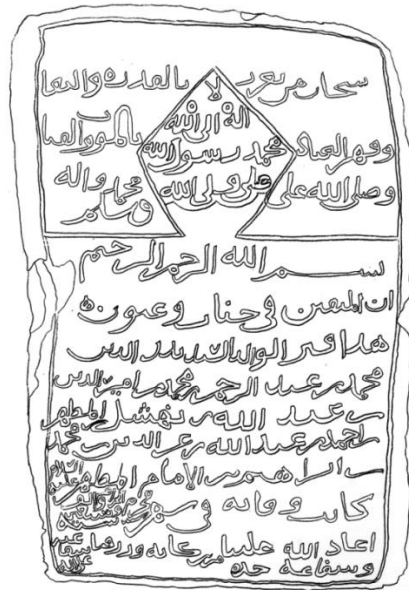 سبحان من تعزز لا بالقدرة والبقا
اله الا الله
وقهر العباد بالموت والفنا
محمد رسول الله
وصلى الله على محمد واله
علي ولي الله
وسلم
بسم الله الرحمن الرحيم
ان المتقين في جنات وعيون
هذا قبر الوالد الدين
محمد بن عبد الرحمن بن محمد بن امير الدين
بن عبد الله بن نهشل بن المطهر
بن احمد بن عبد الله بن عز الدين بن محمد
بن ابراهيم بن الامام المطهر عليه السلام
كانت وفاته في شهر
اعاد الله علينا من بركاته
وشفاعة جده